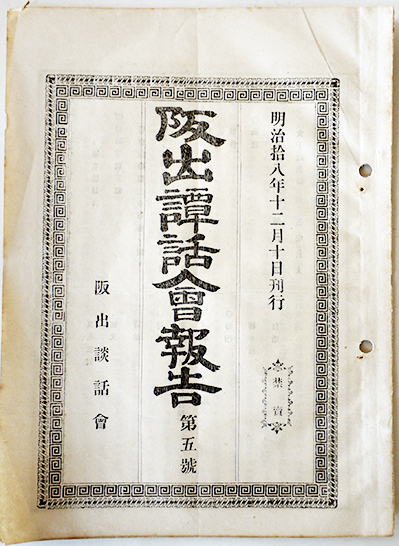 明治拾八年十二月十日刊行
禁賣
阪出譚話會報告
第五號
阪出談話會